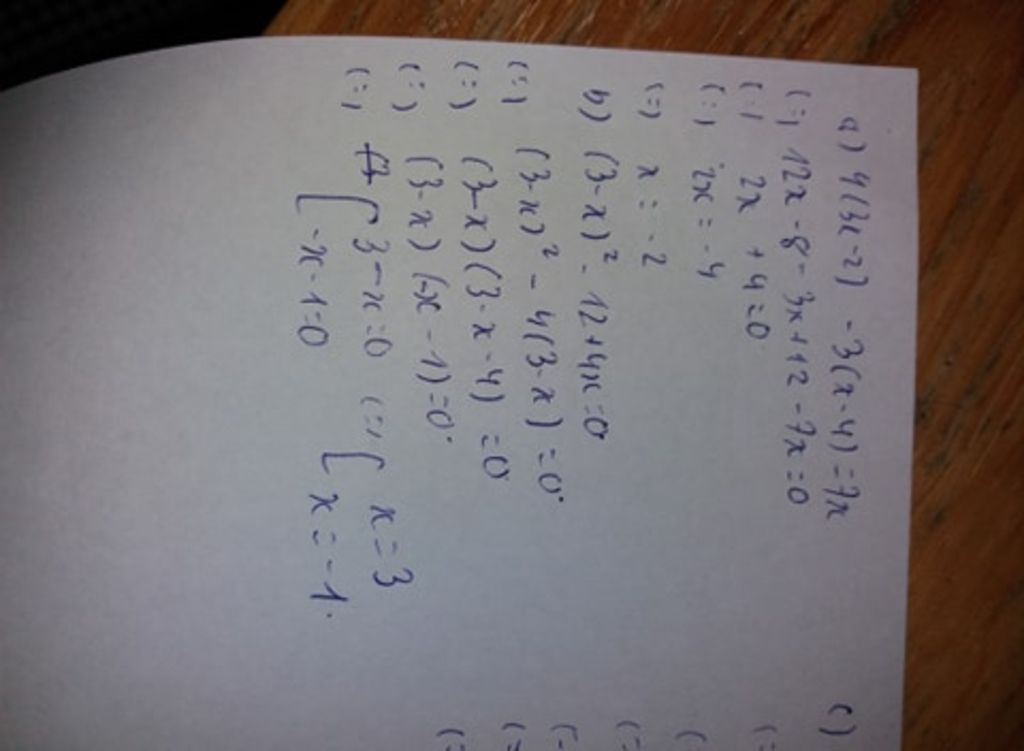 a) 4(3x-2) - 3(x-4) = 7x
(=) 12x - 8 - 3x + 12 - 7x = 0
(=) 2x + 4 = 0
(=) 2x = -4
(=) x = -2
b) (3-x)² - 12 + 4x = 0
(=) (3-x)² - 4(3-x) = 0
(=) (3-x)(3-x-4) = 0
(=) (3-x)(-x-1) = 0
(=) [ 3-x=0 (=) [ x=3
-x-1=0 x=-1.
c)
(=
(
(=
(-
(=
(=